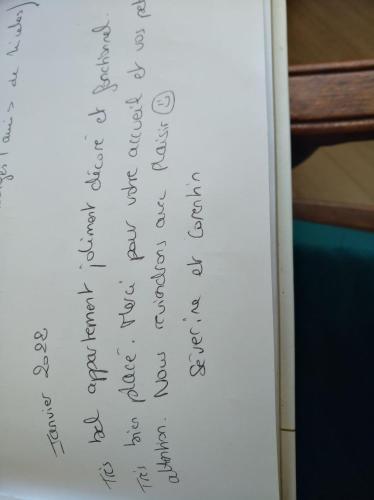 (amis de Nicolas)
Janvier 2022
Très bel appartement joliment décoré et fonctionnel.
Très bien placé. Merci pour votre accueil et vos
attention. Nous reviendrons avec plaisir ☺
Séverine et Corentin